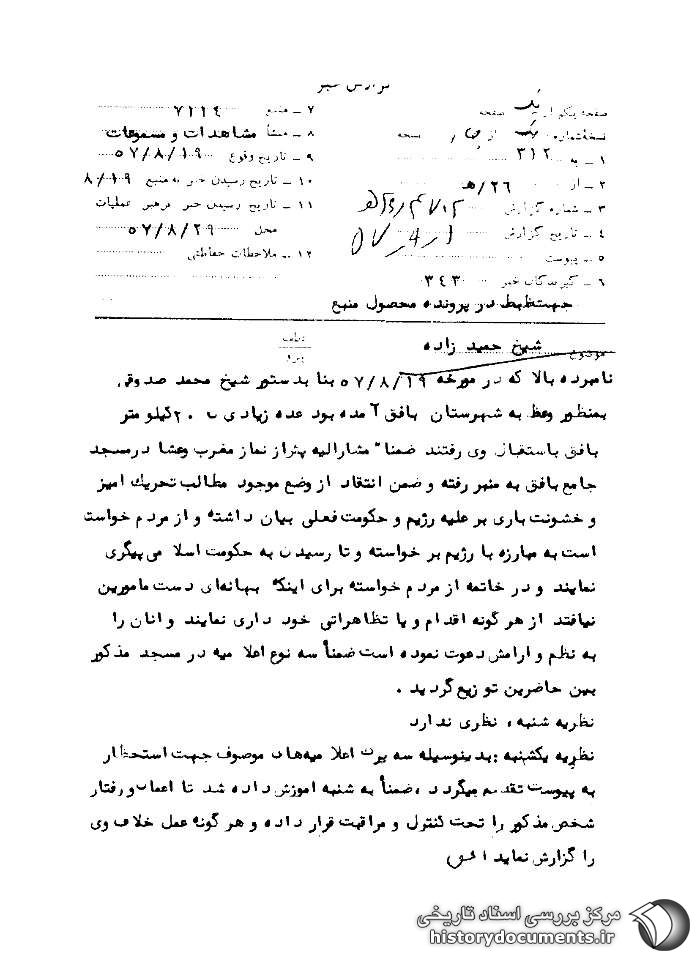 گزارش خبر
صفحه یک از یک صفحه
نسخه شماره یک از چهار نسخه
۱ ـ به ۳۱۲
۲ ـ از ۲۶/ه‍
۳ ـ شماره گزارش
۴ ـ تاریخ گزارش ۵۷
۵ ـ پیوست
۶ ـ گیرندگان خبر ۳۴۳
جهت ضبط در پرونده محصول منبع
۷ ـ منبع ۷۱۱۴
۸ ـ منشأ مشاهدات و مسموعات
۹ ـ تاریخ وقوع ۵۷/۸/۱۹
۱۰ ـ تاریخ رسیدن خبر به منبع ۸/۱۹
۱۱ ـ تاریخ رسیدن خبر برهبر عملیات
محل ۵۷/۸/۲۹
۱۲ ـ ملاحظات حفاظتی
موضوع شیخ حمید زاده
نامبرده بالا که در مورخه ۵۷/۸/۱۹ بنا بدستور شیخ محمد صدوقی
بمنظور وعظ به شهرستان بافق آمده بود عده زیادی ۲۰ کیلو متر
بافق باستقبال وی رفتند ضمنا" مشارالیه پس از نماز مغرب وعشا درمسجد
جامع بافق به منبر رفته و ضمن انتقاد از وضع موجود مطالب تحریک امیز
و خشونت باری بر علیه رژیم و حکومت فعلی بیان داشته و از مردم خواست
است به مبارزه با رژیم بر خواسته و تا رسیدن به حکومت اسلامی پیگری
نمایند و در خاتمه از مردم خواسته برای اینکه بهانه‌ای دست مامورین
نیافتد از هر گونه اقدام و یا تظاهراتی خود داری نمایند و انان را
به نظم و ارامش دعوت نموده است ضمنأ سه نوع اعلامیه در مسجد مذکور
بین حاضرین توزیع گردید .
نظریه شنبه ، نظری ندارد
نظریه یکشنبه : بدینوسیله سه برگ اعلامیه‌های موصوف جهت استحظار
به پیوست تقدیم میگردد ، ضمنأ به شنبه اموزش داده شد تا اعمال و رفتار
شخص مذکور را تحت کنترل و مراقبت قرار داده و هر گونه عمل خلاف وی
را گزارش نماید
مرکز بررسی اسناد تاریخی
historydocuments.ir